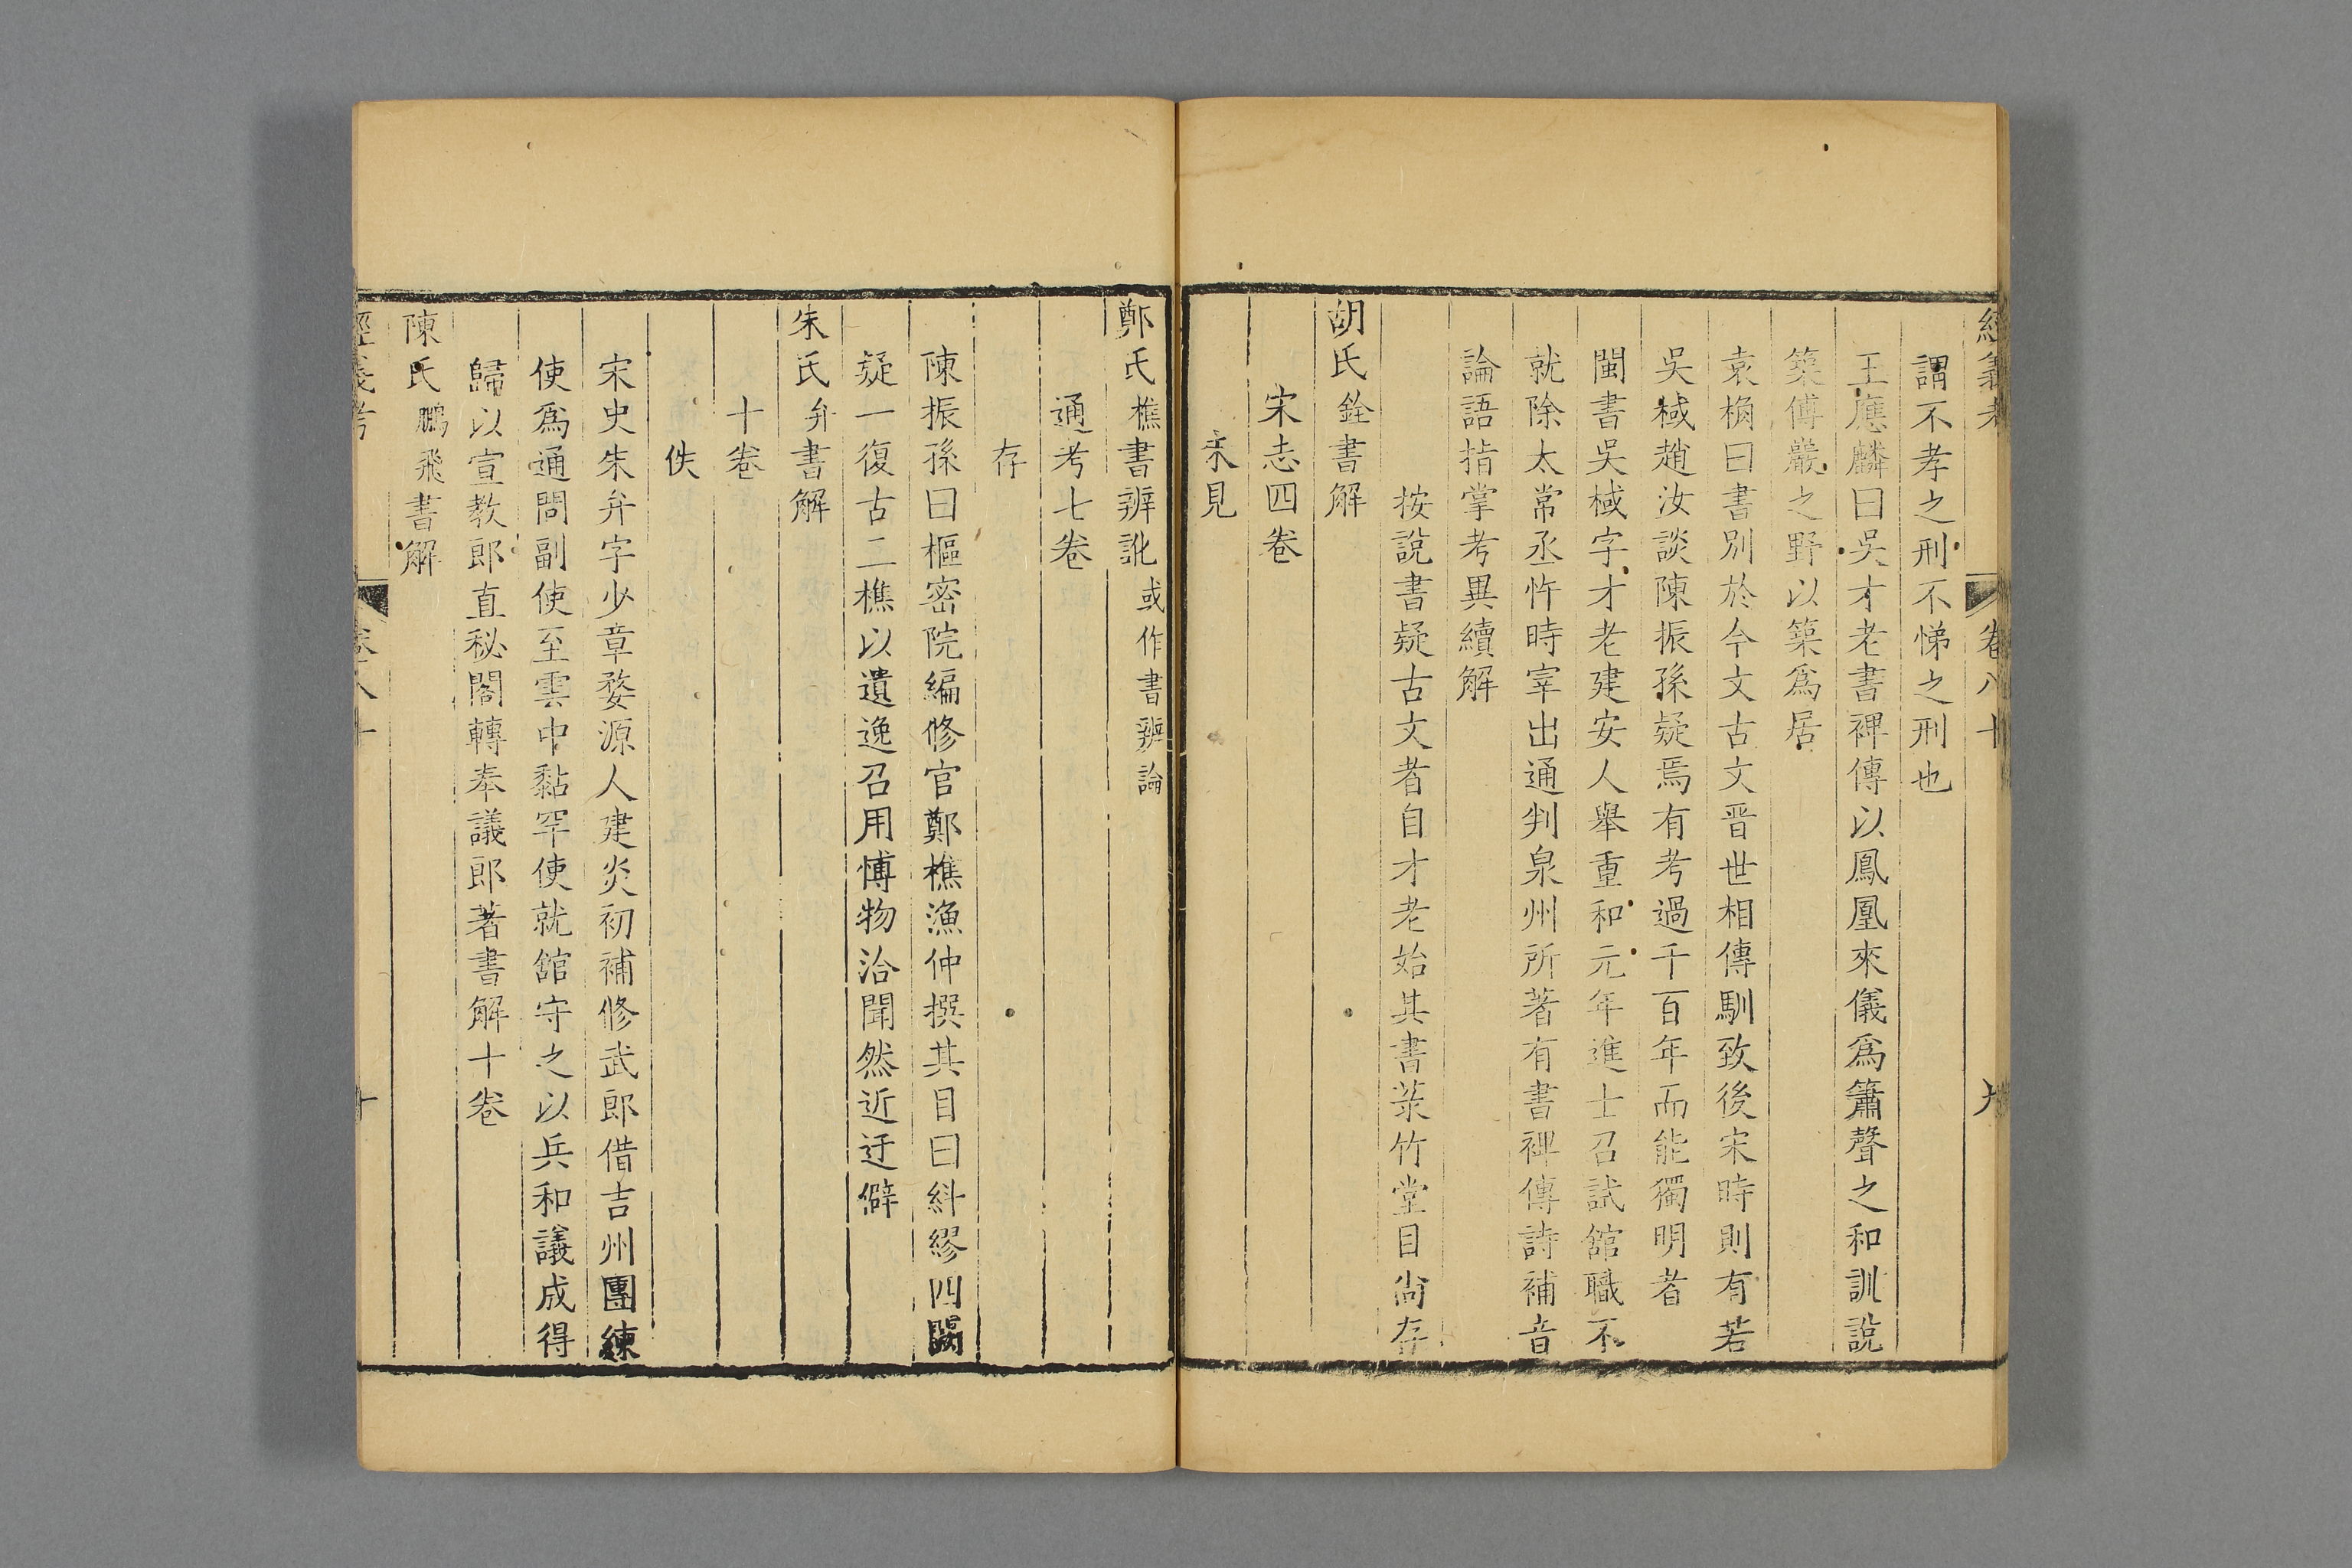 經義考 卷八十 九
謂不孝之刑不悌之刑也
王應麟曰吳才老書裨傳以鳳凰來儀爲簫聲之和訓說
築傅巖之野以築爲居
袁桷曰書別於今文古文晉世相傳馴致後宋時則有若
吳棫趙汝談陳振孫疑焉有考過千百年而能獨明者
閩書吳棫字才老建安人舉重和元年進士召試舘職不
就除太常丞忤時宰出通判泉州所著有書裨傳詩補音
論語指掌考異續解
按說書疑古文者自才老始其書菉竹堂目尙存
胡氏銓書解
宋志四卷
未見
鄭氏樵書辨訛或作書辨論
通考七卷
存
陳振孫曰樞密院編修官鄭樵漁仲撰其目曰糾繆四闕
疑一復古二樵以遺逸召用博物洽聞然近迂僻
朱氏弁書解
十卷
佚
宋史朱弁字少章婺源人建炎初補修武郎借吉州團練
使爲通問副使至雲中黏罕使就舘守之以兵和議成得
歸以宣教郎直秘閣轉奉議郎著書解十卷
陳氏鵬飛書解
經義考 卷八十 十